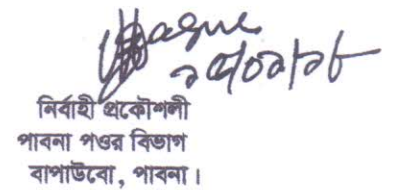 নির্বাহী প্রকৌশলী
পাবনা পওর বিভাগ
বাপাউবো, পাবনা।